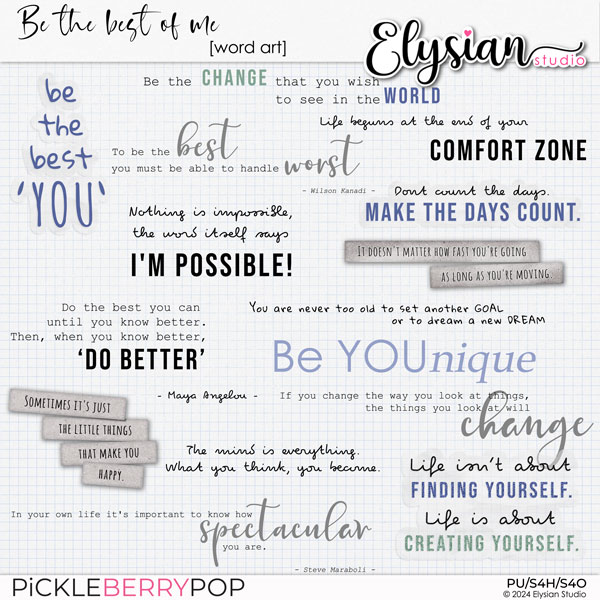 Be the best of me
[word art]
Elysian
studio
be
the
best
'YOU'
Be the CHANGE that you wish
to see in the WORLD
Life begins at the end of your
COMFORT ZONE
To be the best
you must be able to handle worst
- Wilson Kanadi -
Dont count the days.
MAKE THE DAYS COUNT.
Nothing is impossible,
the word itself says
I'M POSSIBLE!
IT DOESN'T MATTER HOW FAST YOU'RE GOING
AS LONG AS YOU'RE MOVING.
Do the best you can
until you know better.
Then, when you know better,
'DO BETTER'
- Maya Angelou -
You are never too old to set another GOAL
or to dream a new DREAM
Be YOUnique
If you change the way you look at things,
the things you look at will
change
SOMETIMES IT'S JUST
THE LITTLE THINGS
THAT MAKE YOU
HAPPY.
The mind is everything.
What you think, you become.
Life isn't about
FINDING YOURSELF.
Life is about
CREATING YOURSELF.
In your own life it's important to know how
spectacular
you are.
- Steve Maraboli -
PiCKLEBERRYPOP
PU/S4H/S4O
© 2024 Elysian Studio